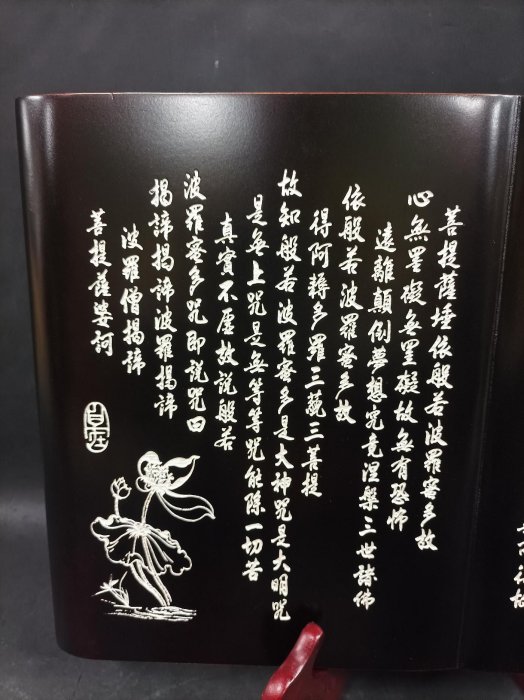 菩提薩埵依般若波羅蜜多故
心無罣礙無罣礙故無有恐怖
遠離顛倒夢想究竟涅槃三世諸佛
依般若波羅蜜多故
得阿耨多羅三藐三菩提
故知般若波羅蜜多是大神咒是大明咒
是無上咒是無等等咒能除一切苦
真實不虛故說般若
波羅蜜多咒即說咒曰
揭諦揭諦波羅揭諦
波羅僧揭諦
菩提薩婆訶
自在